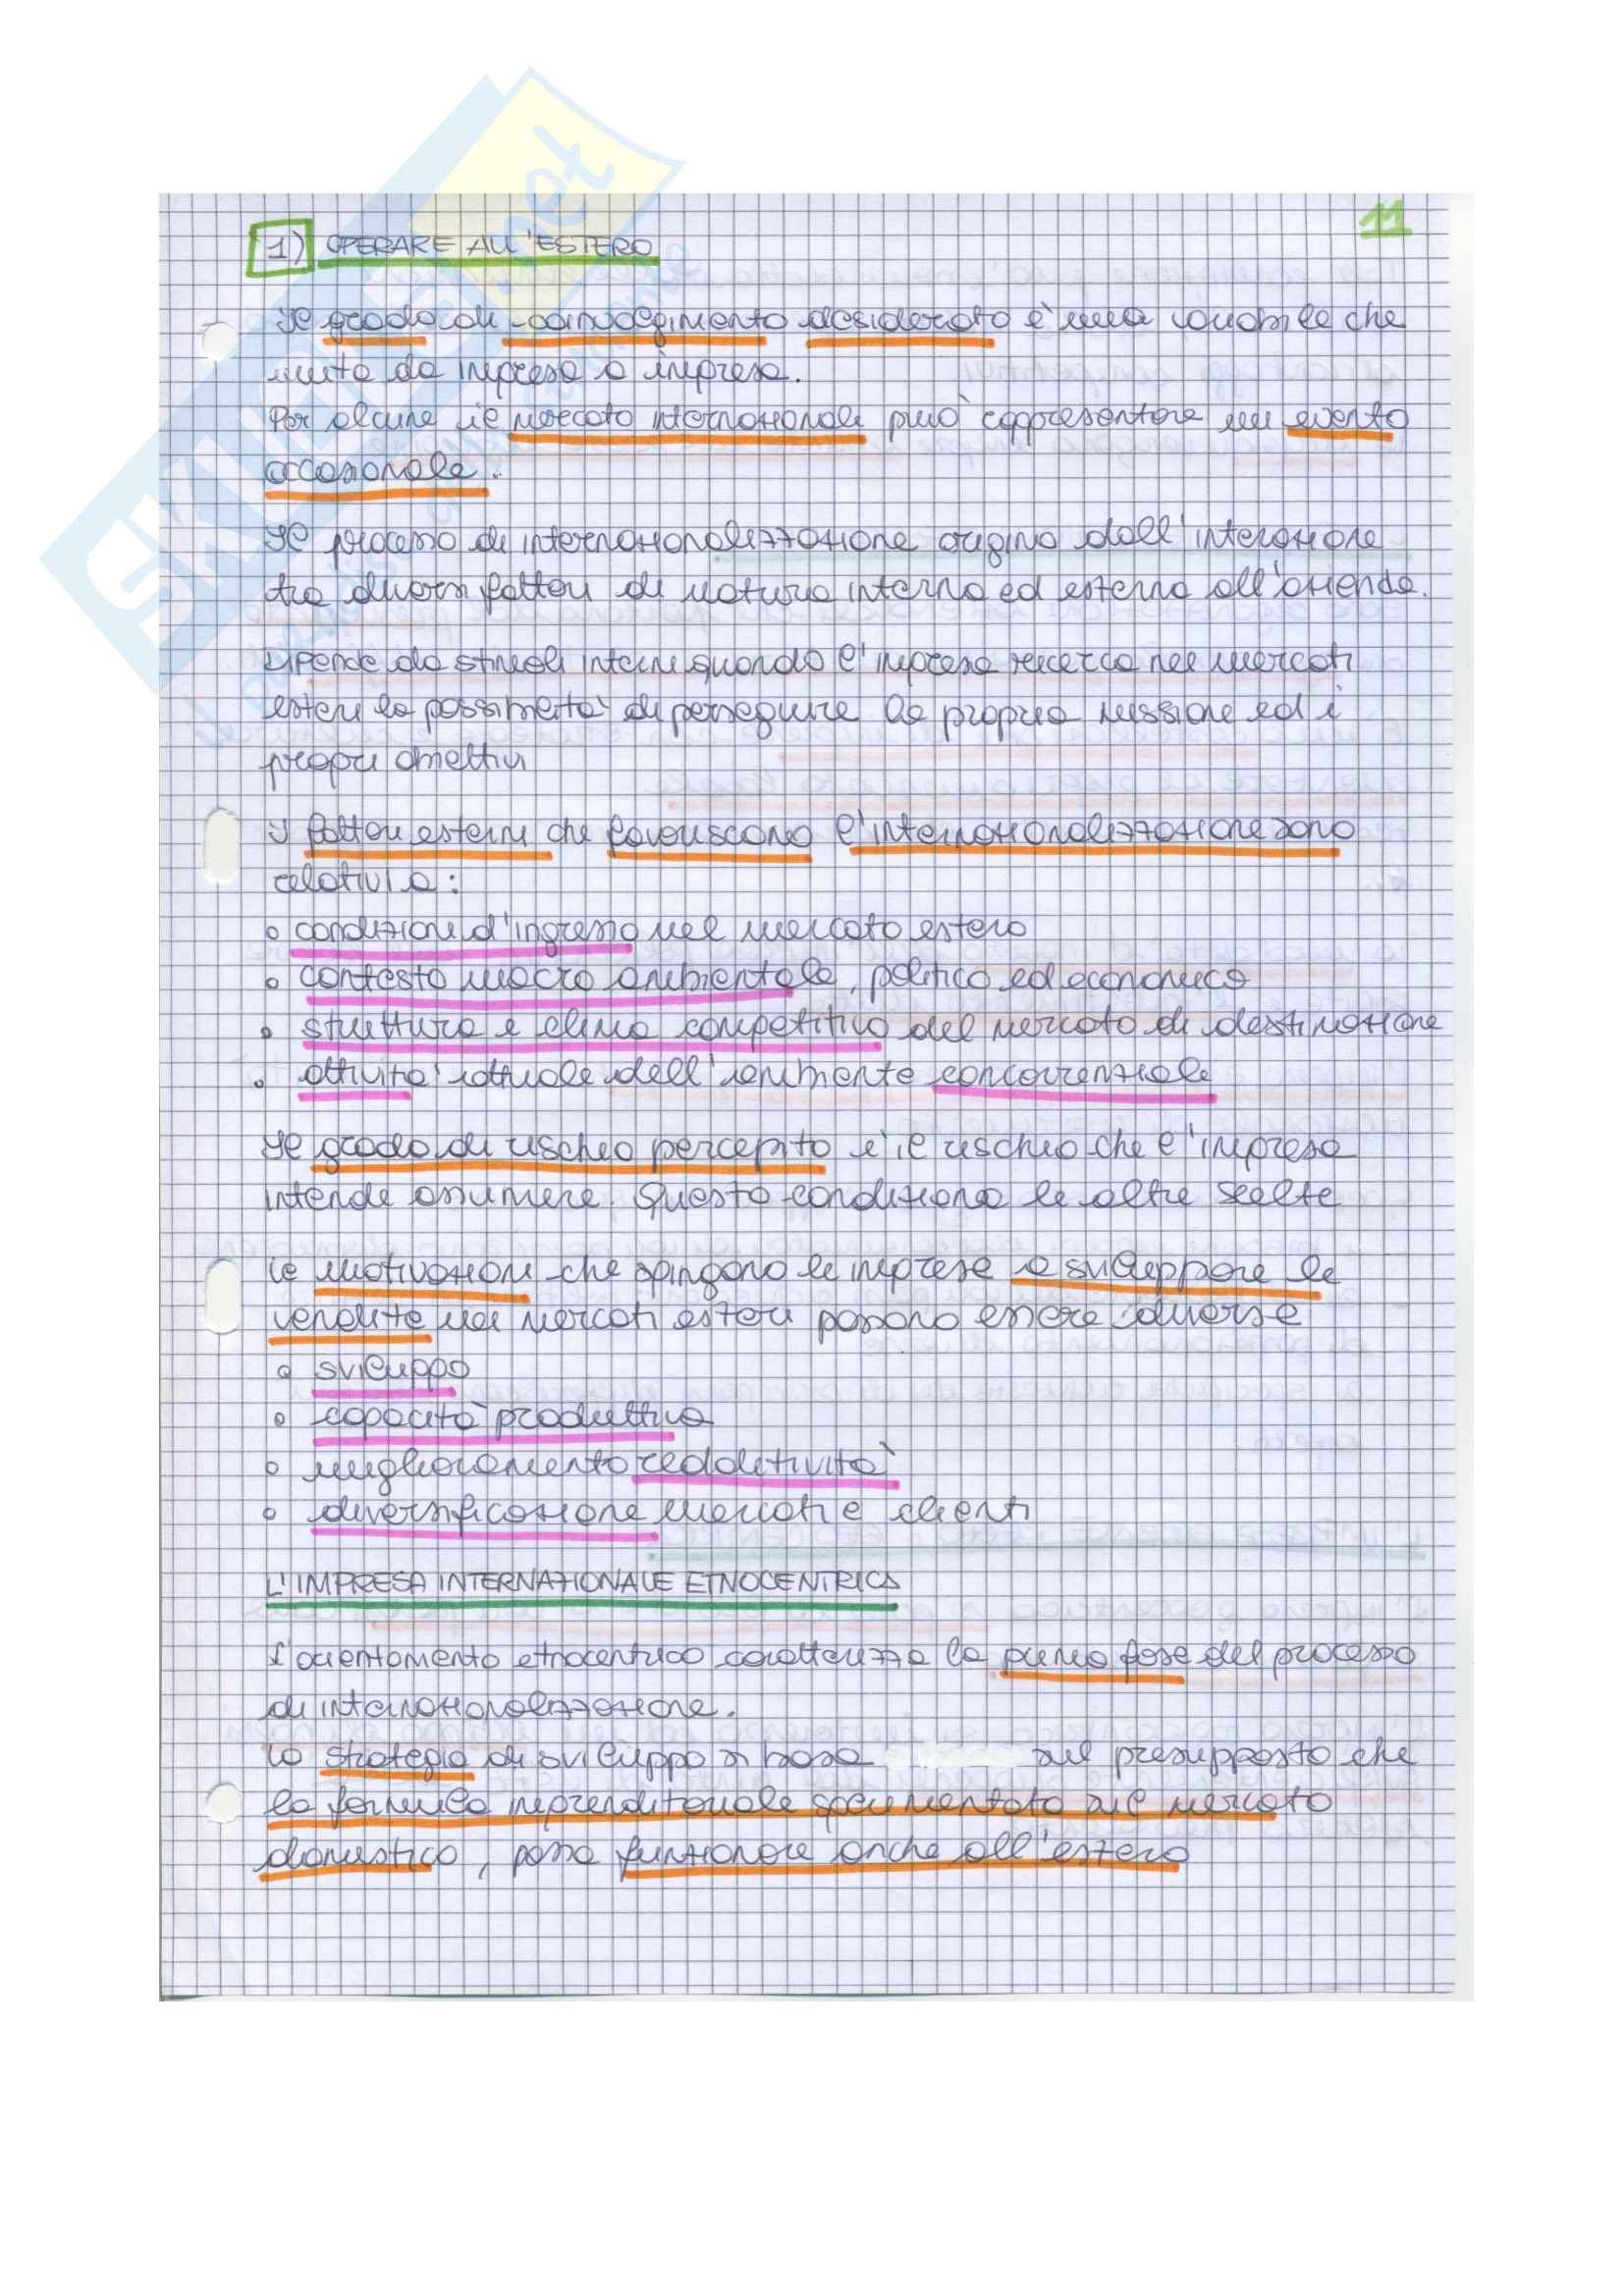 11
1) OPERARE ALL'ESTERO
Il grado di coinvolgimento desiderato è una variabile che
muta da impresa a impresa.
Per alcune il mercato internazionale può rappresentare un evento
occasionale.
Il processo di internazionalizzazione origina dall'interazione
tra diversi fattori di natura interna ed esterna all'azienda.
Dipende da stimoli interni quando l'impresa ricerca nei mercati
esteri la possibilità di perseguire la propria missione ed i
propri obiettivi
I fattori esterni che favoriscono l'internazionalizzazione sono
relativi a:
o condizioni d'ingresso nel mercato estero
o contesto macro ambientale, politico ed economico
o struttura e clima competitivo del mercato di destinazione
o attività attuale dell'ambiente concorrenziale
Il grado di rischio percepito è il rischio che l'impresa
intende assumere. Questo condiziona le altre scelte
Le motivazioni che spingono le imprese a sviluppare le
vendite nei mercati esteri possono essere diverse
o sviluppo
o capacità produttiva
o miglioramento redditività
o diversificazione mercati e clienti
L'IMPRESA INTERNAZIONALE ETNOCENTRICA
L'orientamento etnocentrico caratterizza la prima fase del processo
di internazionalizzazione.
La strategia di sviluppo si basa sul presupposto che
la formula imprenditoriale sperimentata sul mercato
domestico, possa funzionare anche all'estero
SKUOLA.net